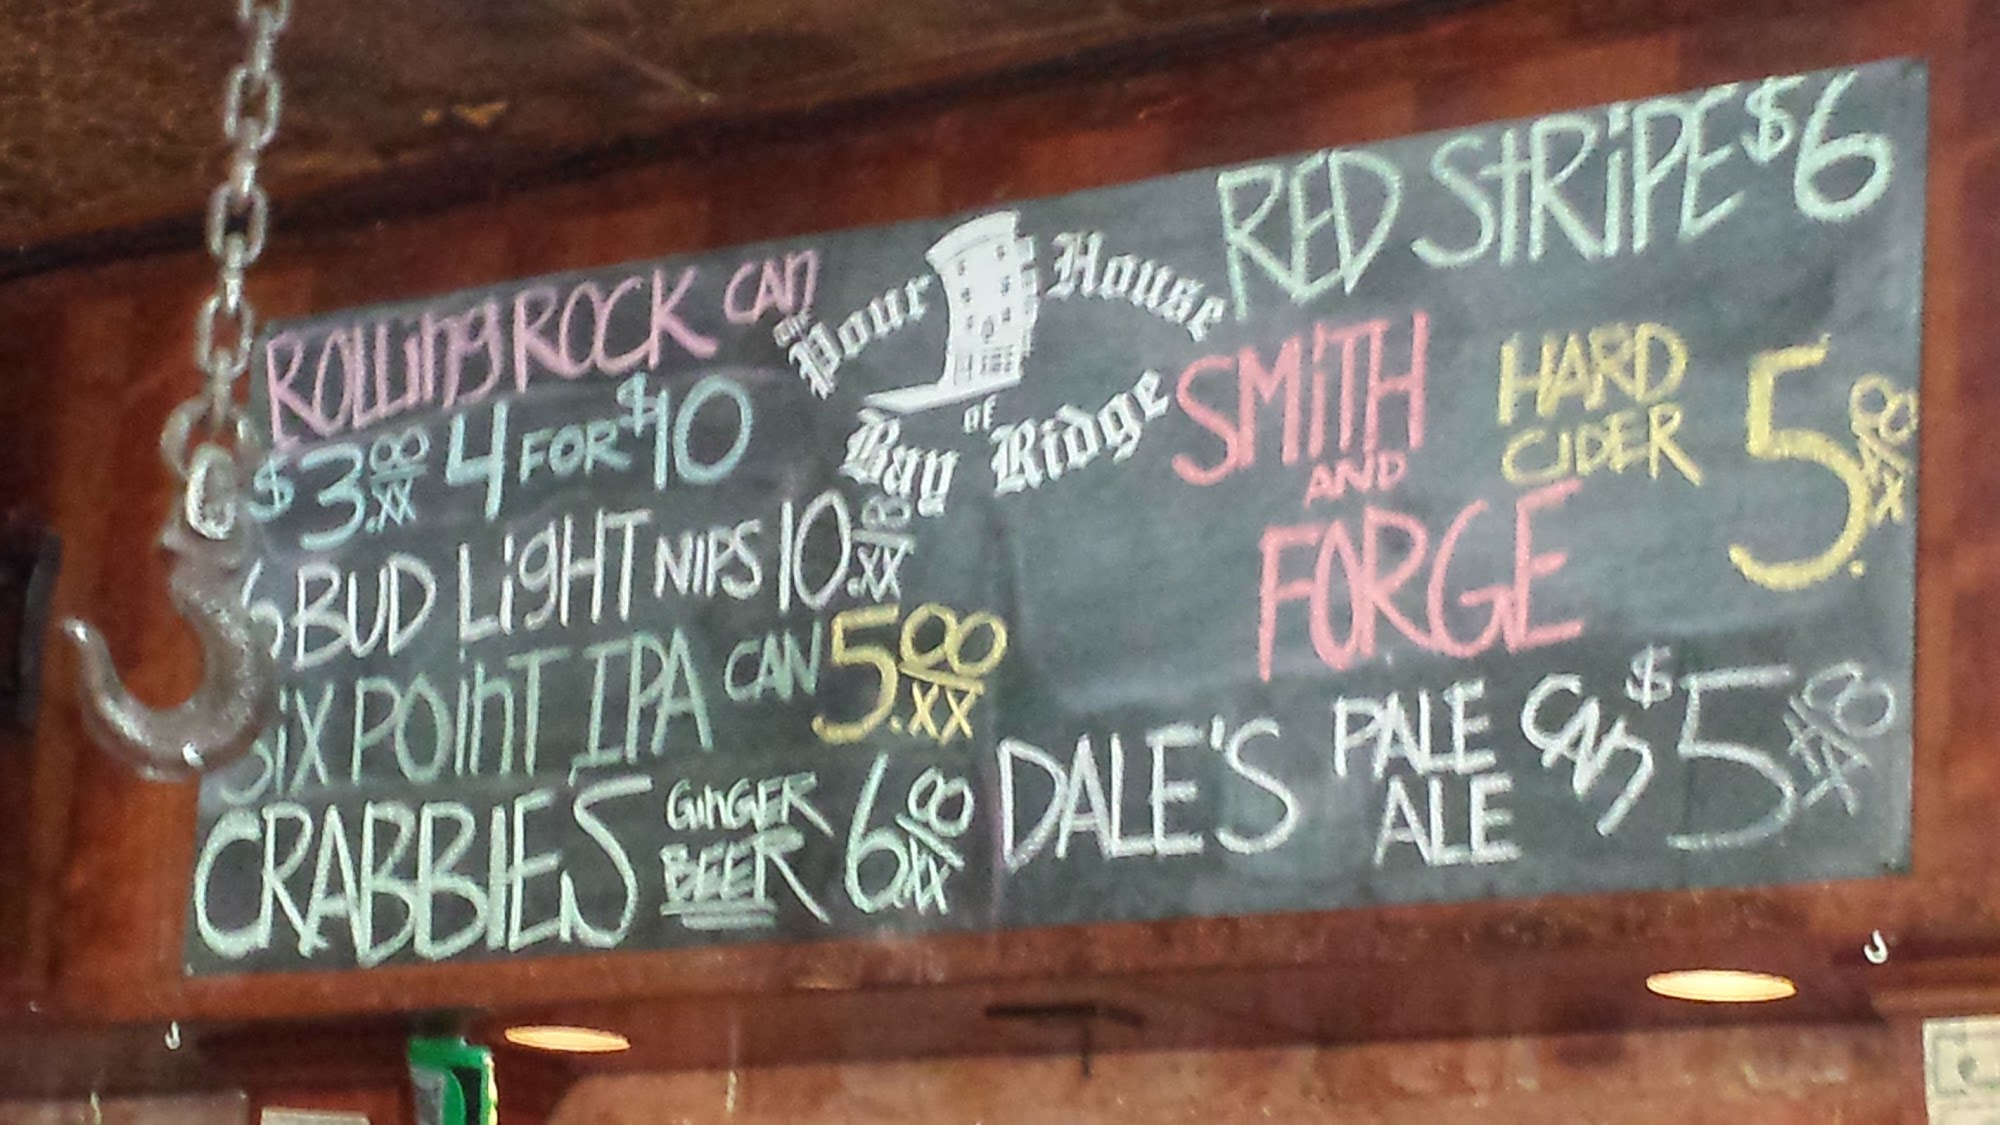 ROLLING ROCK CAN
$3.00/xx 4 FOR $10
6 BUD LIGHT NIPS 10.00/xx
SIX POINT IPA CAN 5.00/xx
CRABBIES GINGER BEER 6.00/xx
the Pour House
of
Bay Ridge
RED STRIPE $6
SMITH AND FORGE
HARD CIDER 5.00/xx
DALE'S PALE ALE CAN $5.00/xx